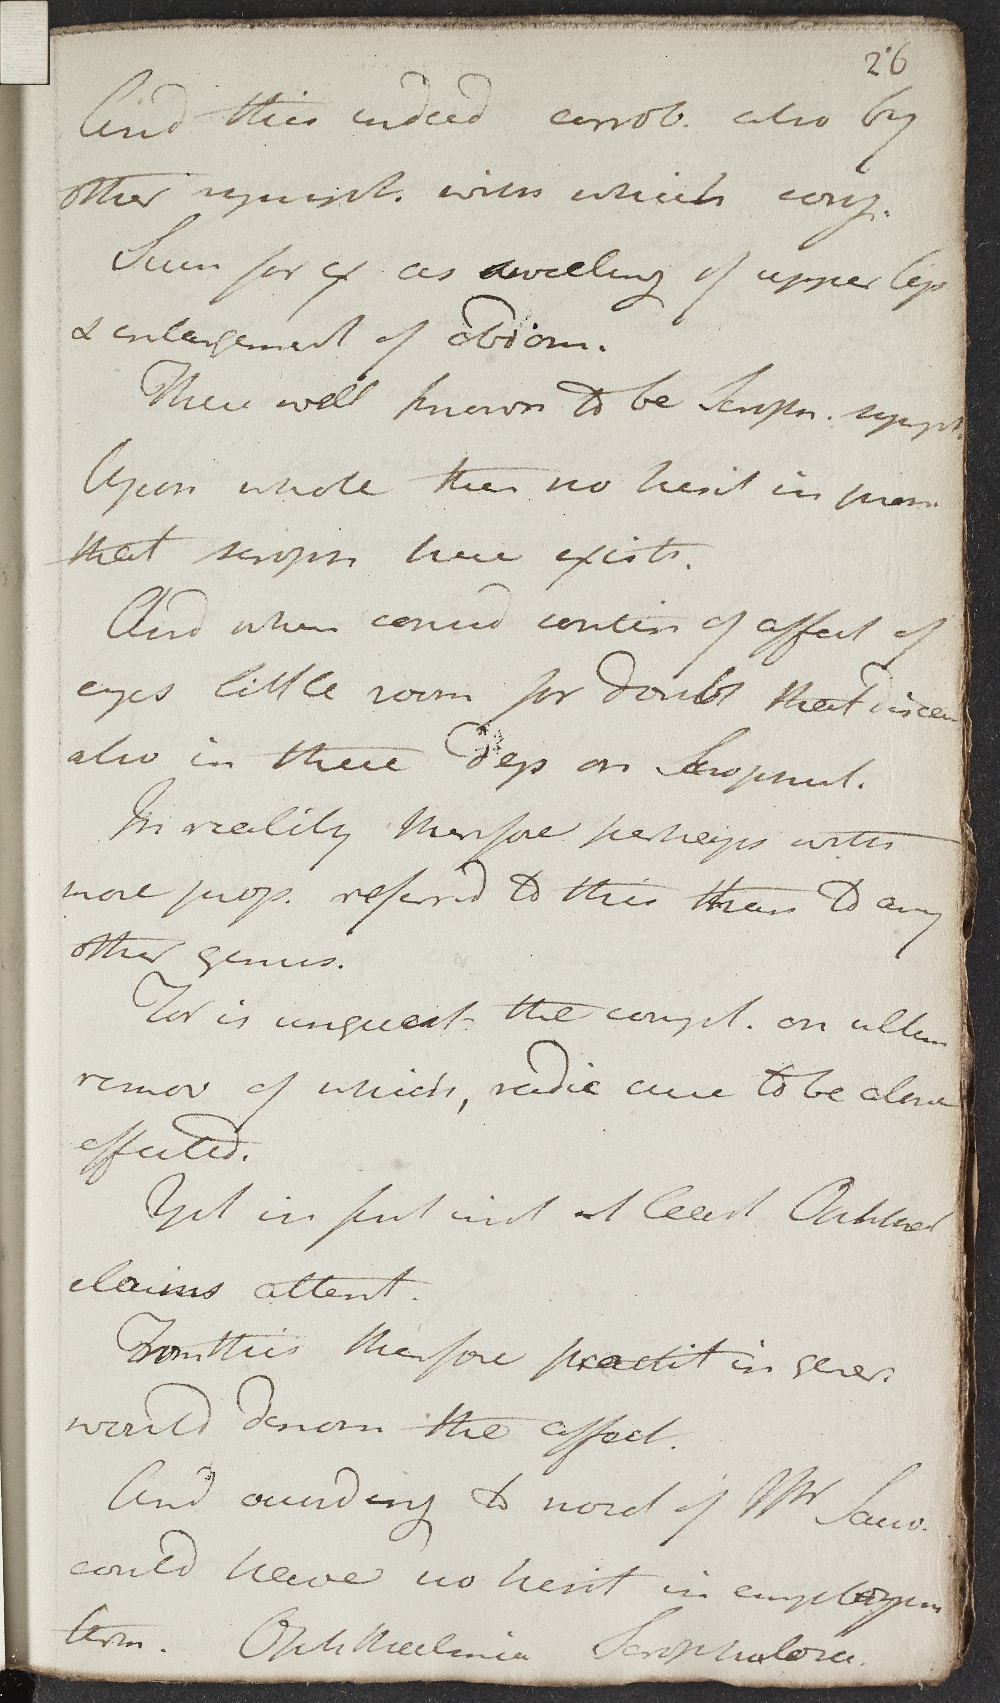 26
And this indeed corrob. also by
other sympt. with which conj.
Such for ex as swelling of upper lip
& enlargement of abdom.
These well known to be Scroph. sympt
Upon whole then no hesit in pron
that scroph here exists.
And when consid contin of affect of
eyes little room for doubt that disease
also in these dep on Scrophul.
In reality therefore perhaps with
more prop. referred to this than to any
other genus.
For is unquest. the compl. on
remov of which, radic cure to be alone
effected.
Yet in pres inst at least Ophthal
claims attent.
From this therefore practit in gener.
would denom the affect.
And according to nosol of Mr Sauv.
could have no hesit in employing
term. Ophthalmia Scrophulosa.